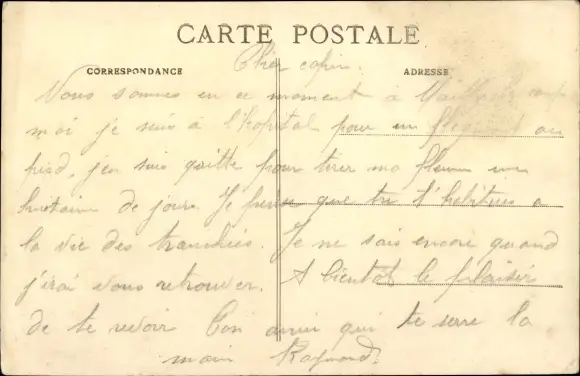 CARTE POSTALE
CORRESPONDANCE
ADRESSE
Cher copin.
Vous sommes en ce moment à Mailly le camp
moi je suis à l'hopital pour un flegmont au
pied, j'en suis quitte pour tirer ma flemme une
huitaine de jours. Je pense que tu t'habitues a
la vie des tranchées. Je ne sais encore quand
j'irai vous retrouver. A bientot le plaisir
de te revoir Ton amin qui te serre la
main Raymond.